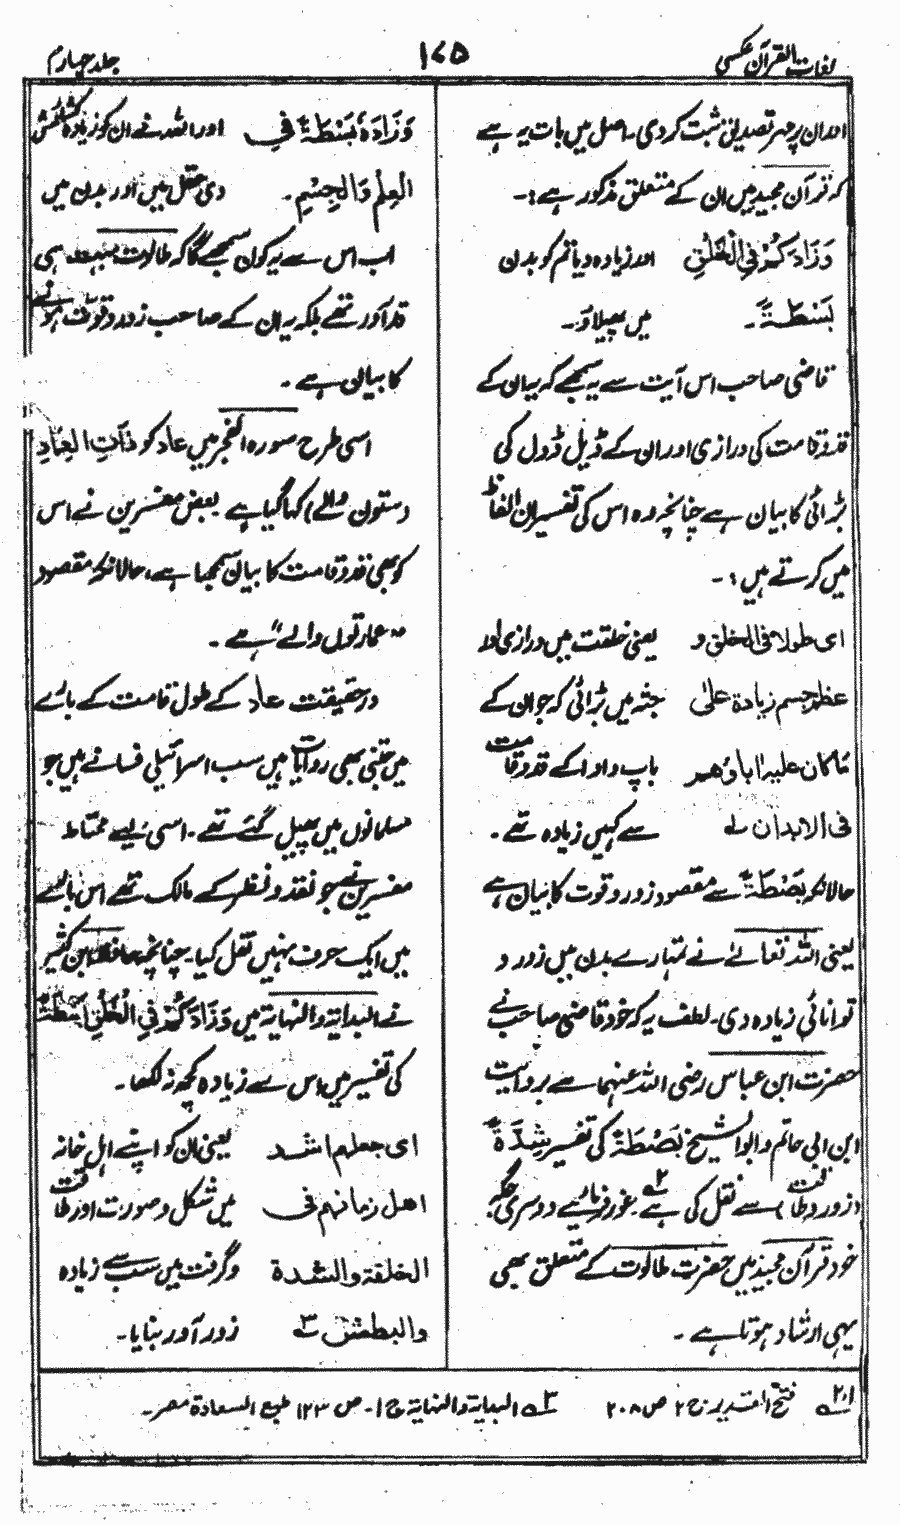 لغات القرآن عکسی
۱۷۵
جلد چہارم
اور ان پر مہر تصدیق ثبت کردی۔ اصل میں بات یہ ہے
کہ قرآن مجید میں ان کے متعلق مذکور ہے :۔
وَزَادَكُمْ فِی الْخَلْقِ اور زیادہ دیا تم کو بدن
بَسْطَةً۔ میں پھیلاؤ۔
قاضی صاحب اس آیت سے یہ سمجھے کہ یہ ان کے
قد و قامت کی درازی اور ان کے ڈیل ڈول کی
بڑائی کا بیان ہے چنانچہ وہ اس کی تفسیر ان الفاظ
میں کرتے ہیں :۔
ای طولا فی الخلق و یعنی خلقت میں درازی اور
عظم جسم زیادة علیٰ جثہ میں بڑائی کہ جو ان کے
ما کان علیہ اٰباؤھم باپ دادا کے قد و قامت
فی الابدان لہ سے کہیں زیادہ تھے۔
حالانکہ بَصْطَةً سے مقصود زور و قوت کا بیان ہے
یعنی اللہ تعالےٰ نے تمہارے بدن میں زور و
توانائی زیادہ دی۔ لطف یہ کہ خود قاضی صاحب نے
حضرت ابن عباس رضی اللہ عنہما سے بروایت
ابن ابی حاتم و ابو الشیخ بَصْطَةً کی تفسیر شِدَّةً
(زور و طاقت) سے نقل کی ہے ۲۔ غور فرمائیے دوسری جگہ
خود قرآن مجید میں حضرت طالوت کے متعلق بھی
یہی ارشاد ہوتا ہے۔
وَزَادَهٗ بَسْطَةً فِی اور اللہ نے ان کو زیادہ کشائش
الْعِلْمِ وَالْجِسْمِ۔ دی عقل میں اور بدن میں
اب اس سے یہ کون سمجھے گا کہ طالوت بہت ہی
قد آور تھے بلکہ یہ ان کے صاحب زور و قوت ہونے
کا بیان ہے۔
اسی طرح سورہ الفجر میں عاد کو ذَاتِ الْعِمَادِ
(ستون والے) کہا گیا ہے بعض مفسرین نے اس
کو بھی قد و قامت کا بیان سمجھا ہے، حالانکہ مقصود
"عمارتوں والے" ہے۔
درحقیقت عاد کے طول قامت کے بارے
میں جتنی بھی روایات ہیں سب اسرائیلی فسانے ہیں جو
مسلمانوں میں پھیل گئے تھے۔ اسی لیے محتاط
مفسرین نے جو نقد و نظر کے مالک تھے اس بارے
میں ایک حرف نہیں نقل کیا۔ چنانچہ حافظ ابن کثیر
نے البدایة والنہایة میں وَزَادَكُمْ فِی الْخَلْقِ بَسْطَةً
کی تفسیر میں اس سے زیادہ کچھ نہ لکھا۔
ای جعلھم اشد یعنی ان کو اپنے اہل زمانہ
اھل زمانھم فی میں شکل و صورت اور طاقت
الخلقة والشدة و گرفت میں سب سے زیادہ
والبطش ۳ زور آور بنایا۔
۲،۱ فتح القدیر ج ۲ ص ۲۰۸ ۳ البدایة والنہایة ج ۱۔ ص ۱۲۳ طبع السعادة مصر۔